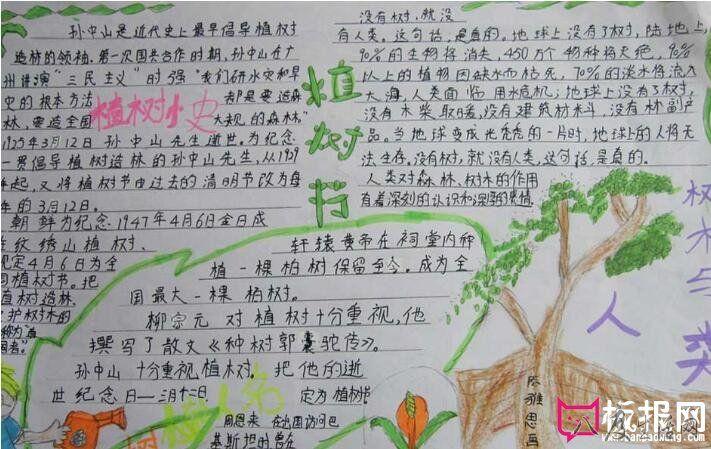 孙中山是近代史上最早倡导植树
造林的领袖。第一次国共合作时期,孙中山在广
州讲演"三民主义"时强"我们研水灾和旱
史的根本方法 都是要造森
植树小史
林,要造全国 大规的森林。"
1925年3月12日孙中山先生逝世。为纪念
一贯倡导植树造林的孙中山先生,从1929
年起,又将植树节由过去的清明节改为每
年的3月12日。
朝鲜为纪念1947年4月6日金日成
在纹绣山植树、
规定4月6日为全
国植树节。把
植树造林
护树木的
称为直
国者"。
植树行
没有树,就没
有人类。这句话,是真的。地球上没有了树,陆地上
90%的生物将消失,450万个物种将灭绝,90%
以上的植物因缺水而枯死,70%的淡水将流入
大海,人类面临用水危机;地球上没有了树,
没有木柴取暖,没有建筑材料,没有林副产
品。当地球变成光秃秃的一片时,地球上的人将无
法生存。没有树,就没有人类,这句话,是真的。
人类对森林、树木的作用
有着深刻的认识和深厚的感情
树木与人类
轩辕黄帝在祠堂内种
植一棵柏树保留至今。成为全
国最大一棵柏树。
柳宗元对植树十分重视,他
撰写了散文《种树郭橐驼传》。
孙中山十分重视植树。把他的逝
世纪念日—三月十二日 定为植树节
周恩来 在出国访问巴
基斯坦时曾在
树 人 名
陈雅思画
板报网